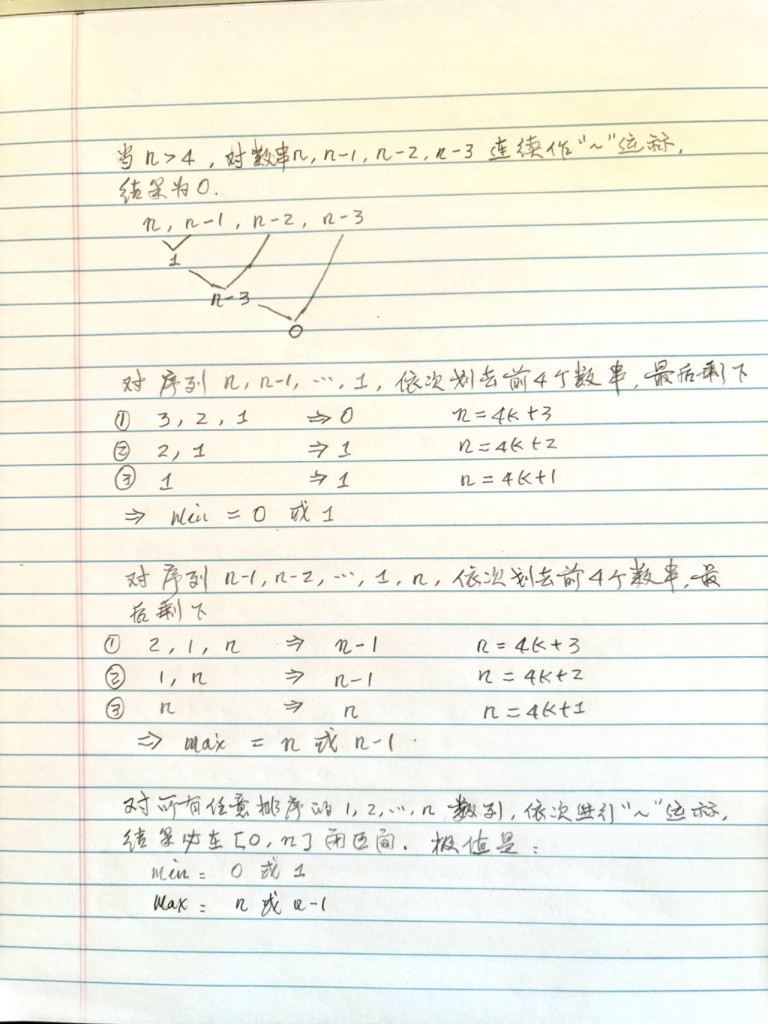 当 n>4，对数串n, n-1, n-2, n-3 连续作"~"运标，
结果为0.
n, n-1, n-2, n-3
1
n-3
0
对序列 n, n-1, …, 1，依次划去前4个数串，最后剩下
① 3, 2, 1 ⇒ 0 n=4k+3
② 2, 1 ⇒ 1 n=4k+2
③ 1 ⇒ 1 n=4k+1
⇒ Min = 0 或 1
对序列 n-1, n-2, …, 1, n，依次划去前4个数串，最
后剩下
① 2, 1, n ⇒ n-1 n=4k+3
② 1, n ⇒ n-1 n=4k+2
③ n ⇒ n n=4k+1
⇒ max = n 或 n-1.
对所有任意排序的 1, 2, …, n 数列，依次进行"~"运标，
结果必在[0, n]闭区间. 极值是：
Min = 0 或 1
Max = n 或 n-1